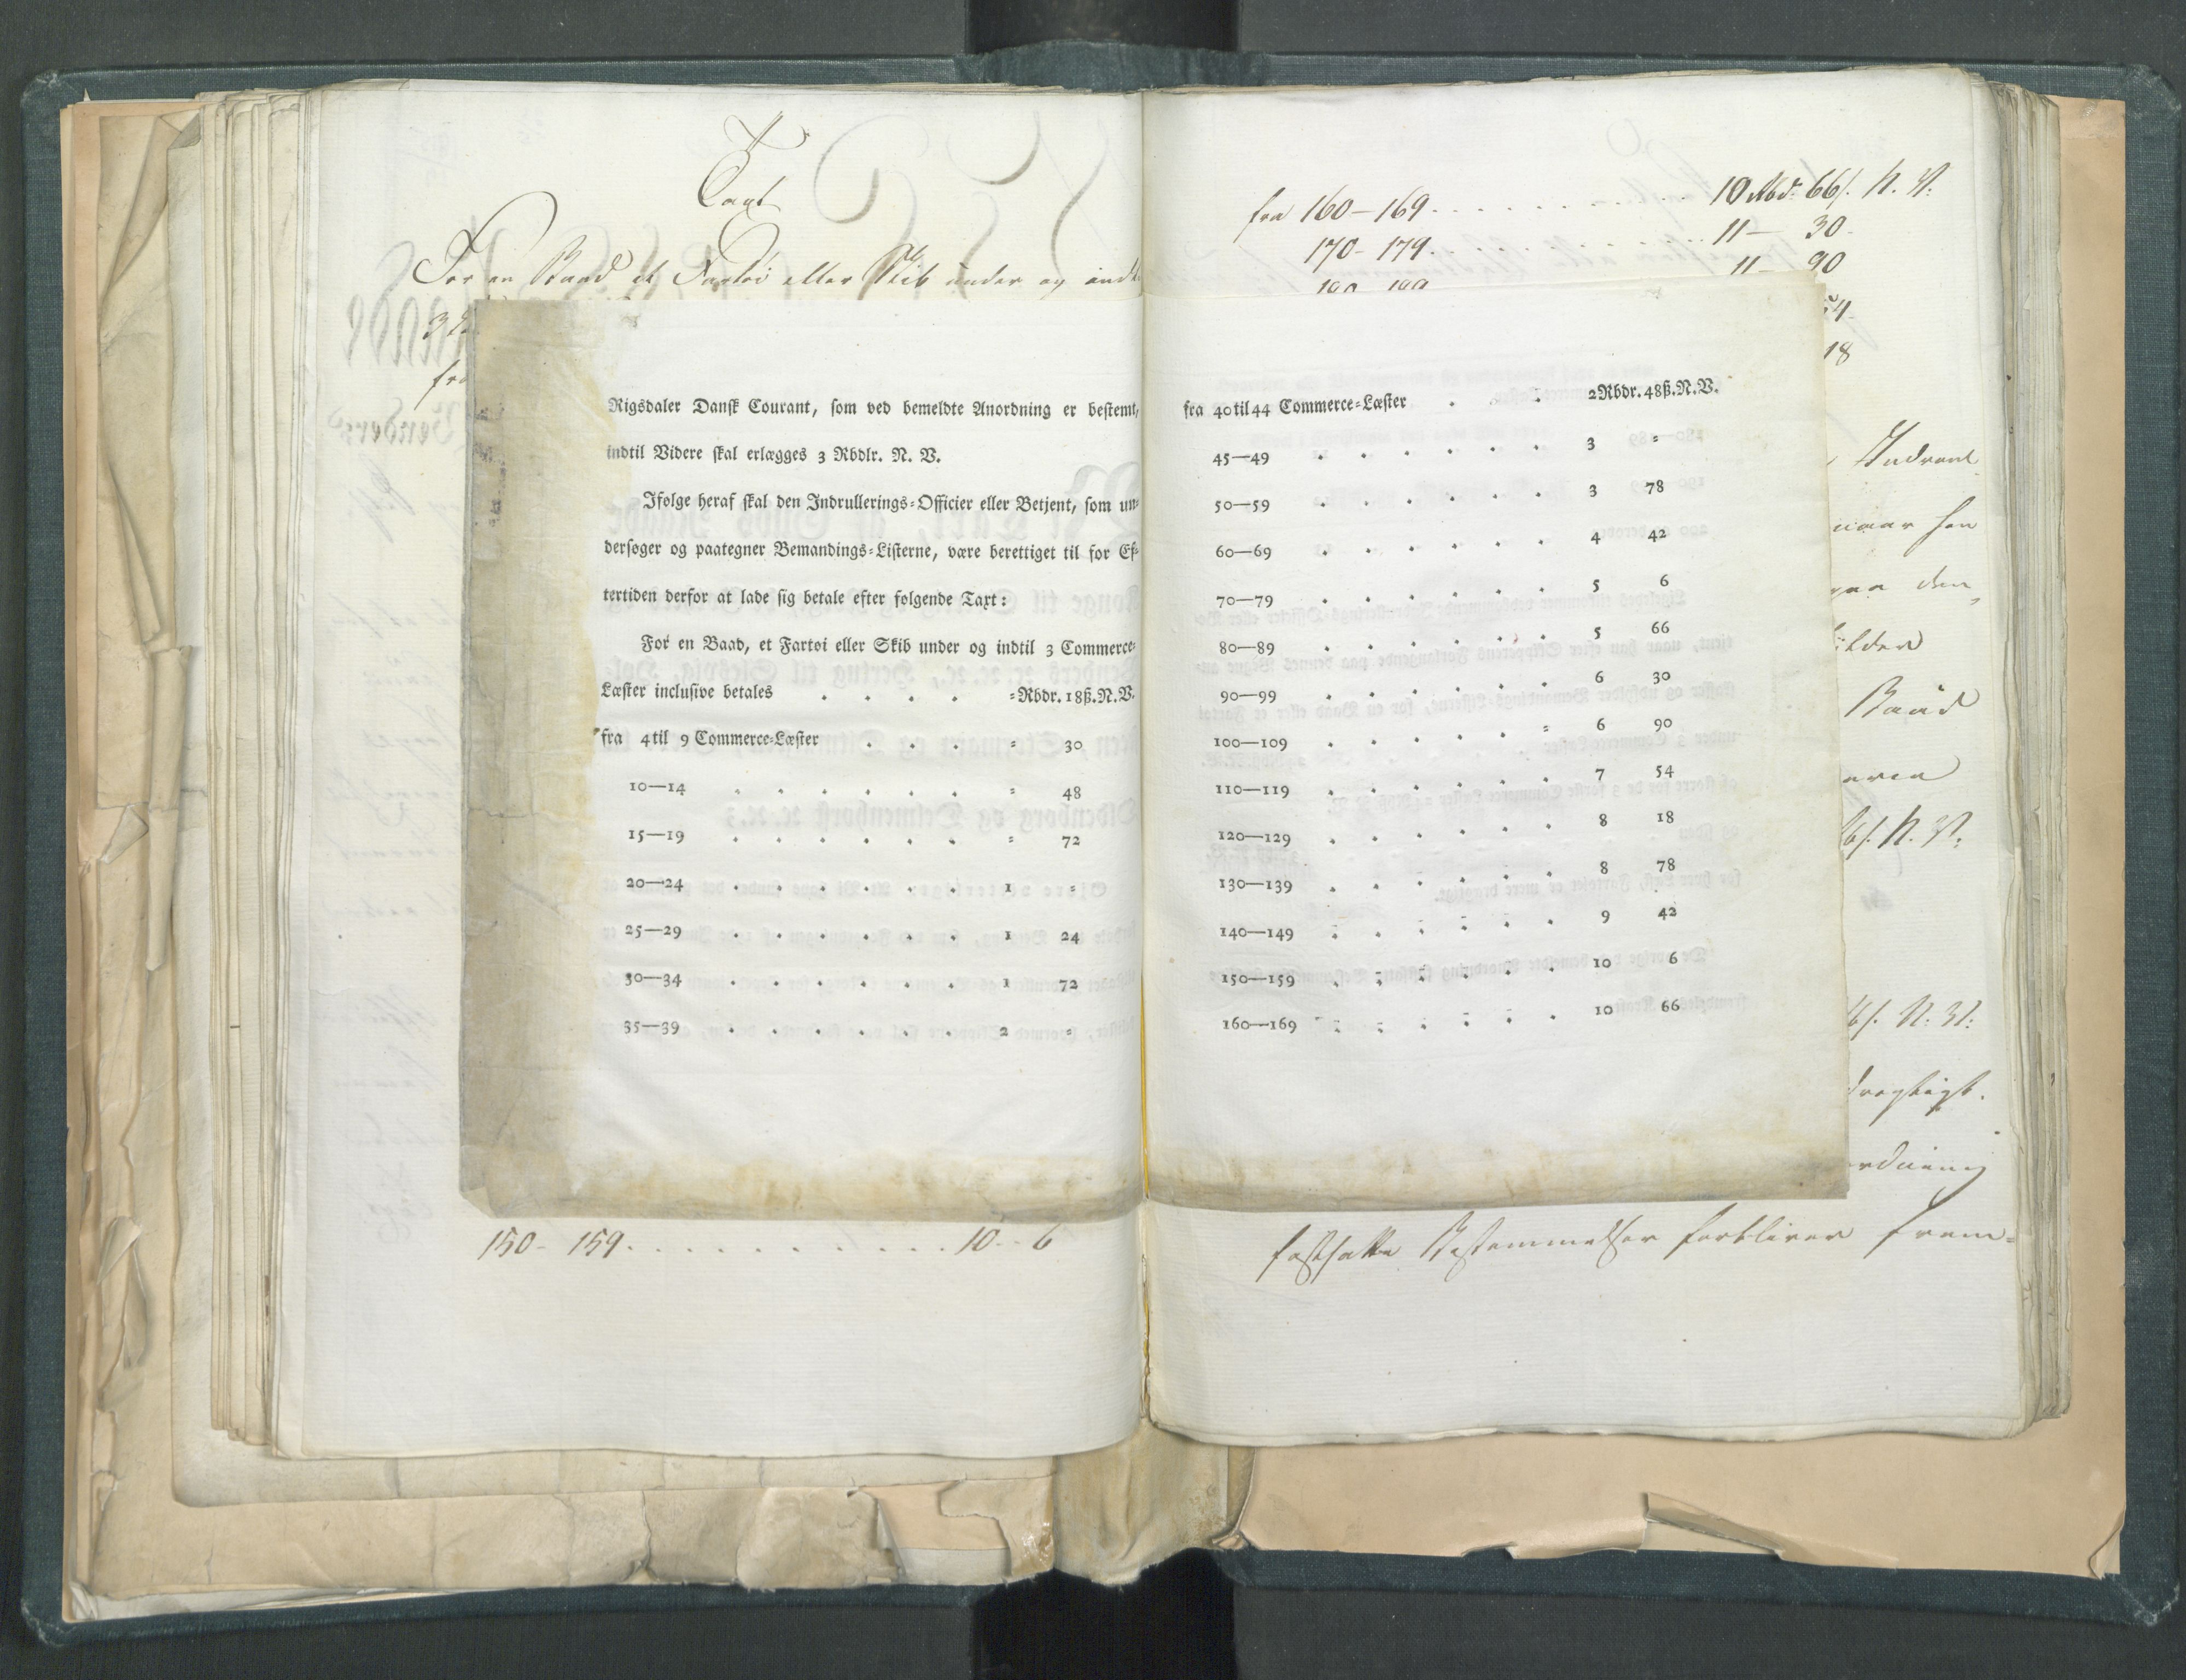 Taxt
For en Baad et Fartøi eller Skib under og indt
3
fra
Rigsdaler Dansk Courant, som ved bemeldte Anordning er bestemt,
indtil Videre skal erlægges 3 Rbdlr. N. V.
Ifølge heraf skal den Indrullerings=Officier eller Betjent, som un=
dersøger og paategner Bemandings=Listerne, være berettiget til for Ef=
tertiden derfor at lade sig betale efter følgende Taxt:
For en Baad, et Fartøi eller Skib under og indtil 3 Commerce=
Læster inclusive betales . . . . =Rbdr. 18ß. N. V.
fra 4 til 9 Commerce=Læster . . . = 30
10—14 . . . . . . = 48
15—19 . . . . . . = 72
20—24 . . . . . . 1 =
25—29 . . . . . . 1 24
30—34 . . . . . . 1 72
35—39 . . . . . . 2 =
150 - 159 . . . . . . . . . . 10 - 6
fra 160 — 169 . . . . . . 10 Rbd: 66ß. N. V:
170 - 179 . . . . . 11 — 30 -
11 — 90
54 -
18
fra 40 til 44 Commerce=Læster . . . 2 Rbdr. 48ß. N. V.
45—49 . . . . . . 3 =
50—59 . . . . . . 3 78
60—69 . . . . . . 4 42
70—79 . . . . . . 5 6
80—89 . . . . . . 5 66
90—99 . . . . . . 6 30
100—109 . . . . . = 6 90
110—119 . . . . . . 7 54
120—129 . . . . . . 8 18
130—139 . . . . . . 8 78
140—149 . . . . . . 9 42
150—159 . . . . . . 10 6
160—169 . . . . . . 10 66
naar han
paa den
Baad
ß. N. V:
ß. N: V:
drægtigt.
ordning
fastsatte Bestemmelser forbliver frem=